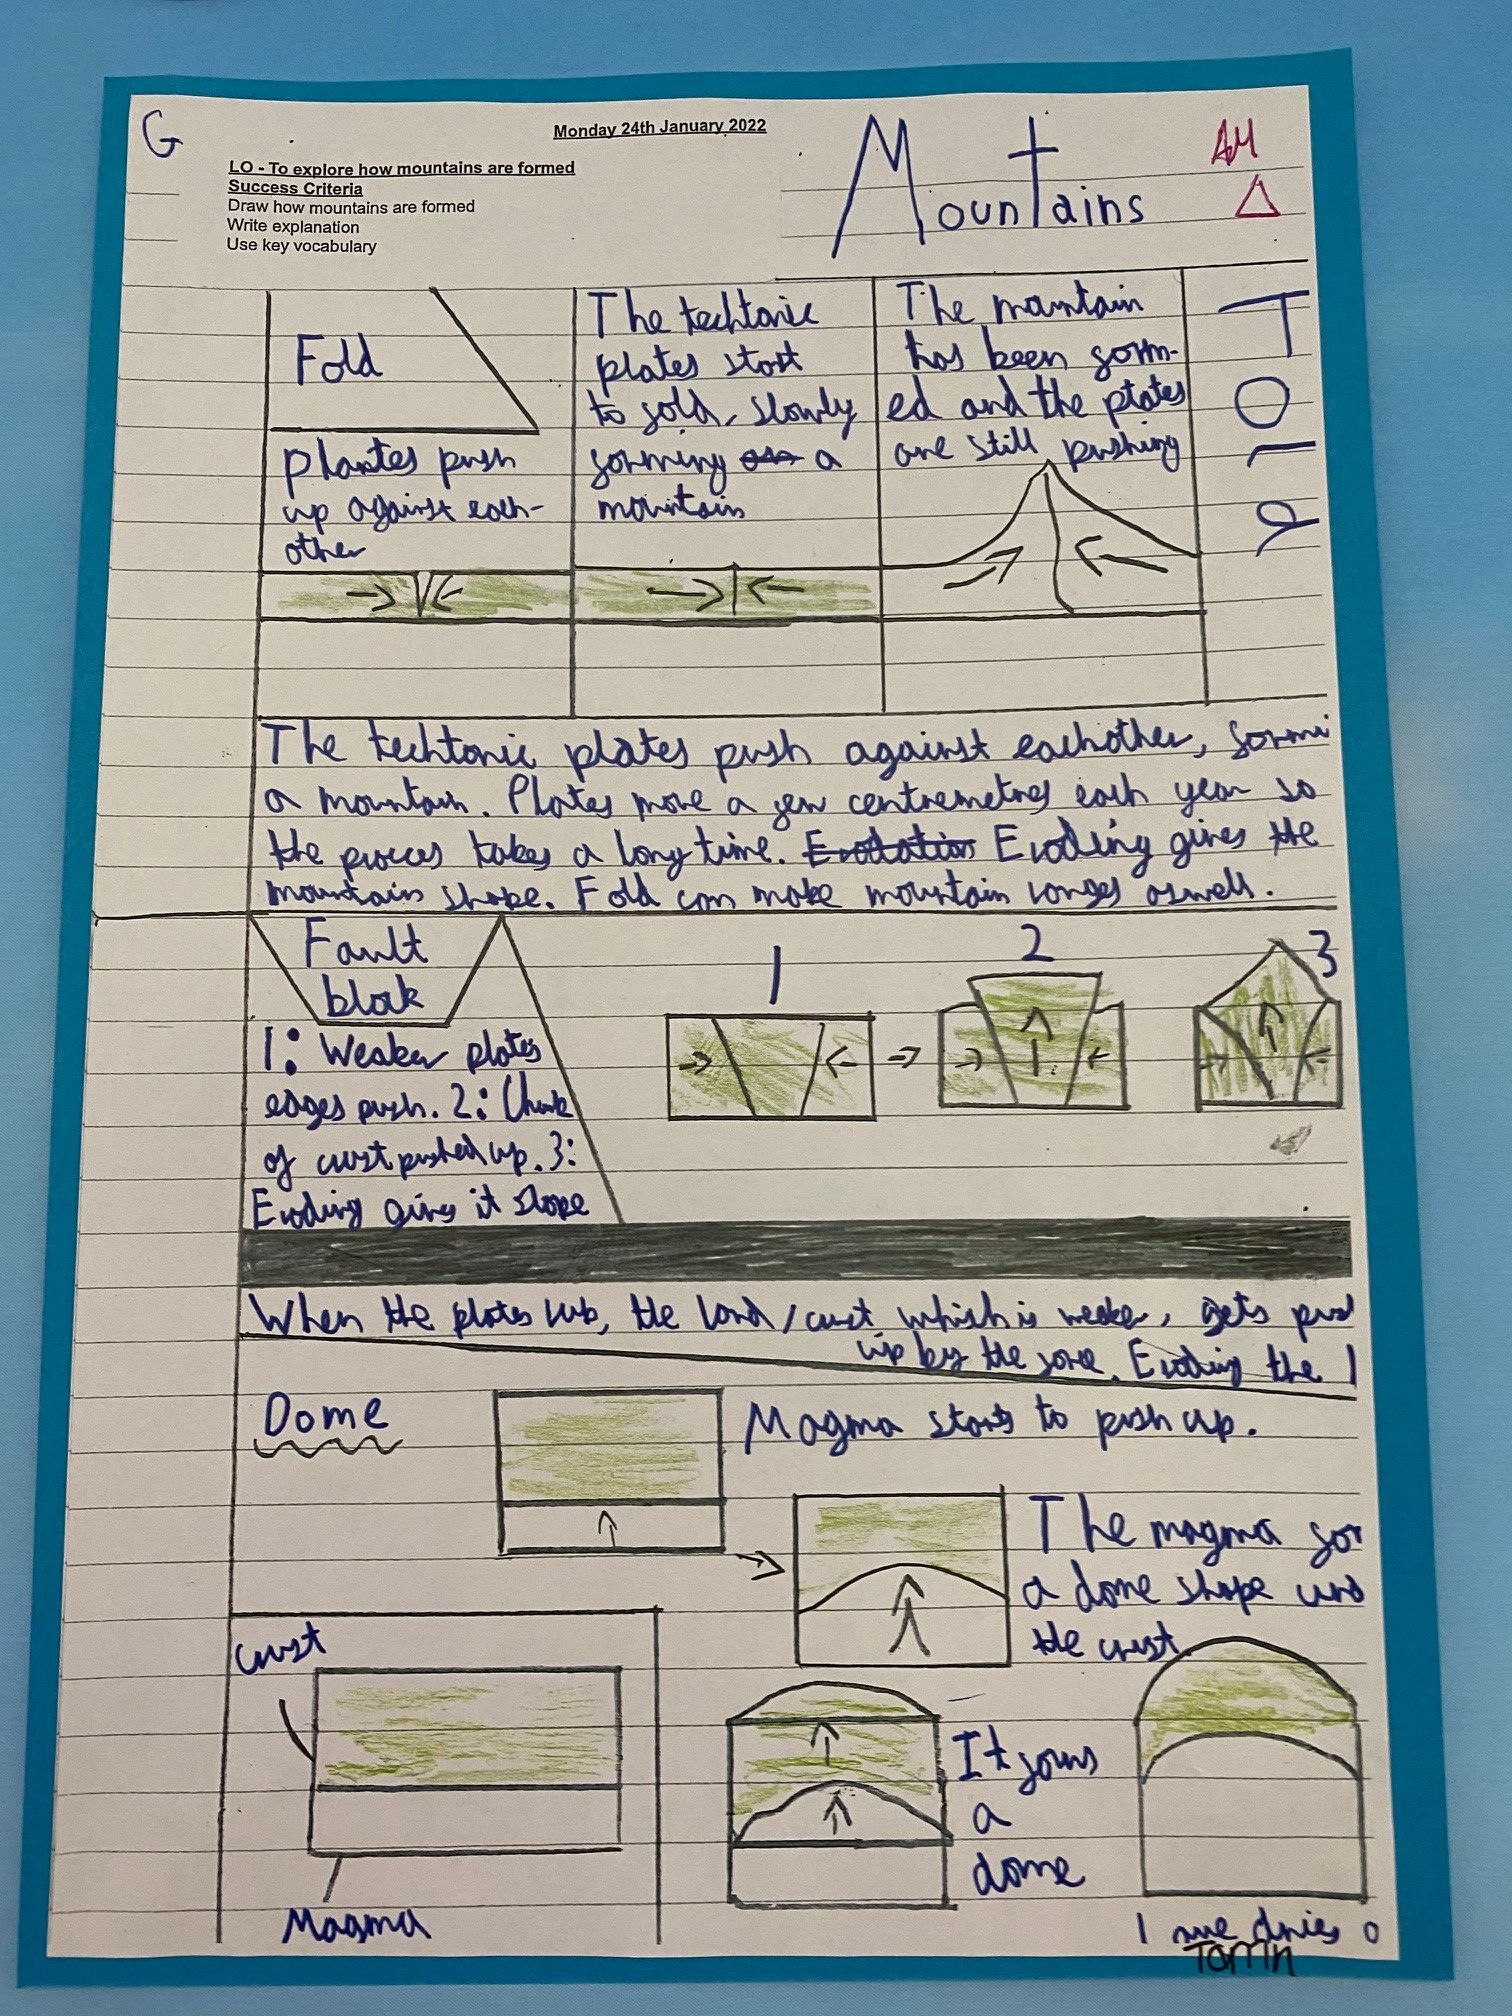 G
Monday 24th January 2022
LO - To explore how mountains are formed
Success Criteria
Draw how mountains are formed
Write explanation
Use key vocabulary
Mountains
AM
Fold
plantes push
up against each-
other
The techtonic
plates start
to fold, slowly
forming a
mountain
The mantain
has been form-
ed and the plates
are still pushing
The techtonic plates push against eachother, formi
a mountain. Plates move a few centremetres each year so
the procces takes a long time. Eroding gives the
mountain shape. Fold can make mountain ranges aswell.
Fault
block
1: Weaker plates
edges push. 2: Chunk
of crust pushed up. 3:
Eroding gives it shape
1
2
3
When the plates rub, the land / crust which is weaker, gets pus
up by the force. Eroding the
Dome
Magma starts to push up.
The magma for
a dome shape und
the crust
crust
Magma
It forms
a
dome
dries